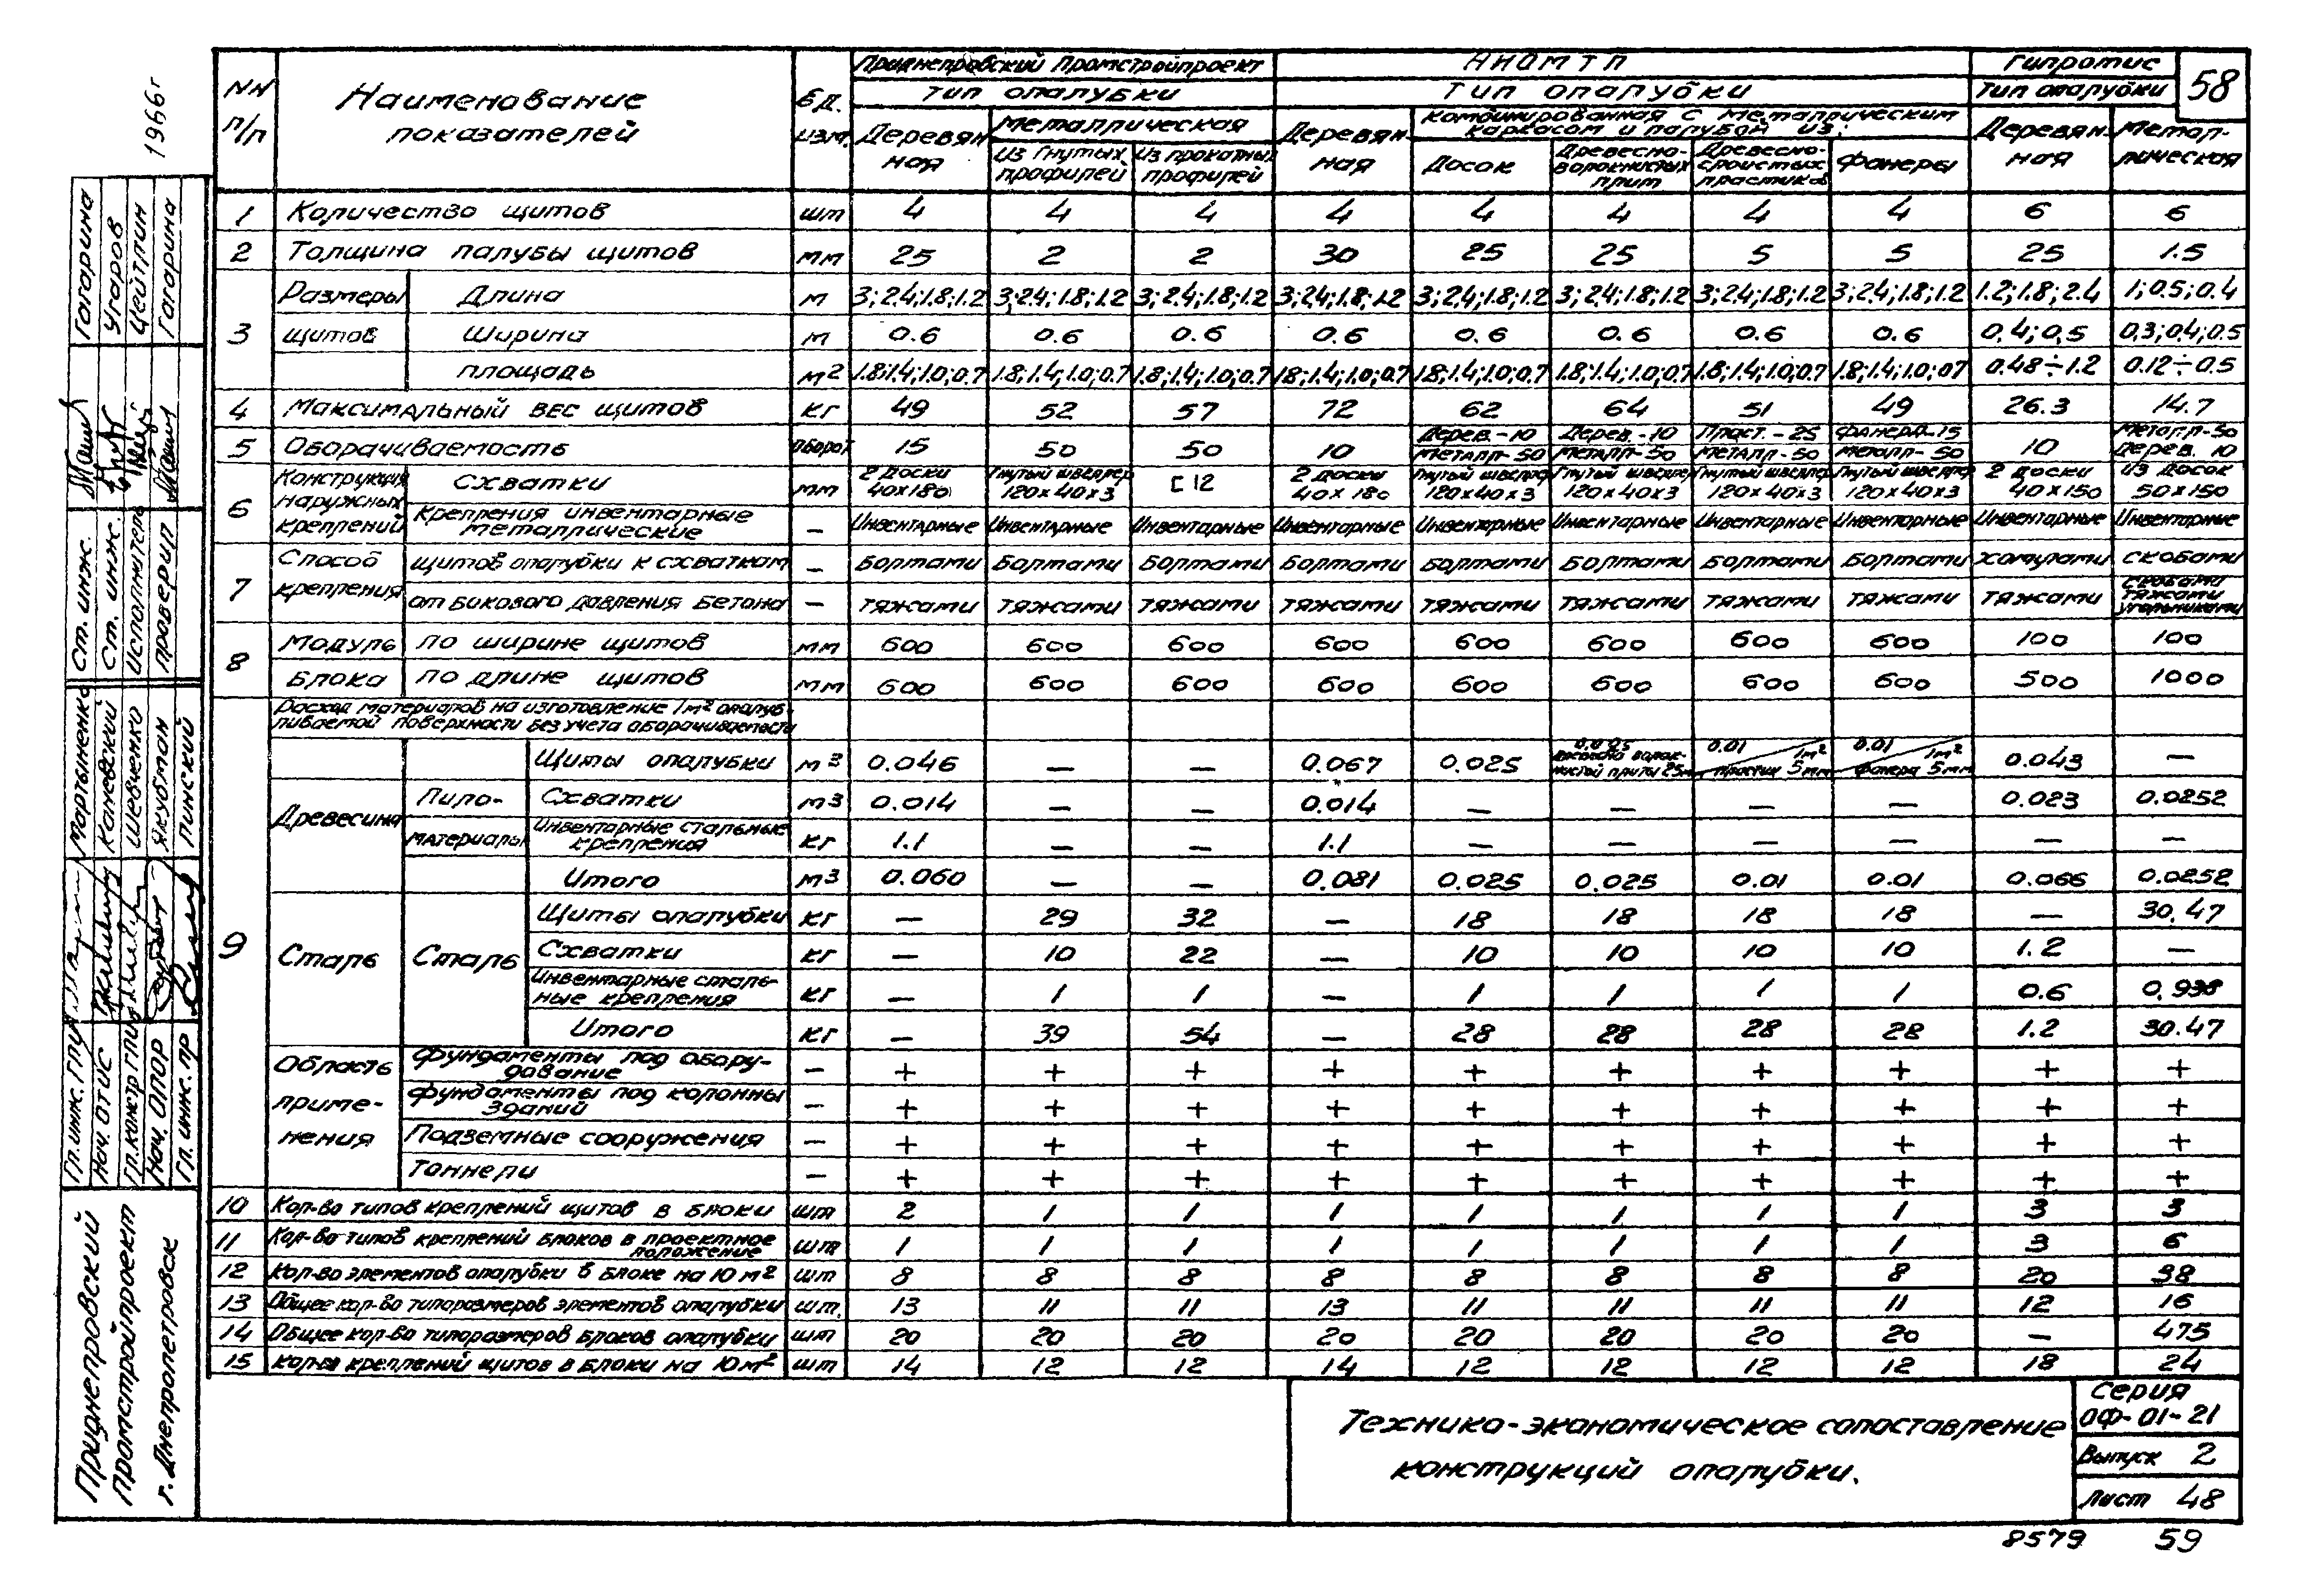 58
NN п/п Наименование показателей Ед. изм. Приднепровский Промстройпроект АНОМТП Гипротис
Тип опалубки Тип опалубки Тип опалубки
Деревянная Металлическая Деревянная Комбинированная с металлическим каркасом и палубой из: Деревянная Металлическая
Из гнутых профилей Из прокатных профилей Досок Древесно-волокнистых плит Древесно-слоистых пластиков Фанеры
1 Количество щитов шт 4 4 4 4 4 4 4 4 6 6
2 Толщина палубы щитов мм 25 2 2 30 25 25 5 5 25 1.5
3 Размеры щитов Длина м 3;2.4;1.8;1.2 3;2.4;1.8;1.2 3;2.4;1.8;1.2 3;2.4;1.8;1.2 3;2.4;1.8;1.2 3;2.4;1.8;1.2 3;2.4;1.8;1.2 3;2.4;1.8;1.2 1.2;1.8;2.4 1;0.5;0.4
Ширина м 0.6 0.6 0.6 0.6 0.6 0.6 0.6 0.6 0,4;0,5 0,3;0,4;0.5
площадь м2 1.8;1.4;1.0;0.7 1.8;1.4;1.0;0.7 1.8;1.4;1.0;0.7 1.8;1.4;1.0;0.7 1.8;1.4;1.0;0.7 1.8;1.4;1.0;0.7 1.8;1.4;1.0;0.7 1.8;1.4;1.0;07 0.48÷1.2 0.12÷0.5
4 Максимальный вес щитов кг 49 52 57 72 62 64 51 49 26.3 14.7
5 Оборачиваемость оборот 15 50 50 10 Дерев.-10 Металл-50 Дерев.-10 Металл-50 Пласт.-25 Металл-50 Фанера-15 Металл-50 10 Металл-50 Дерев. 10
6 Конструкция наружных креплений Схватки мм 2 доски 40х180 Гнутый швеллер 120х40х3 [12 2 доски 40х180 Гнутый швеллер 120х40х3 Гнутый швеллер 120х40х3 Гнутый швеллер 120х40х3 Гнутый швеллер 120х40х3 2 доски 40х150 из досок 50х150
Крепления инвентарные металлические – Инвентарные Инвентарные Инвентарные Инвентарные Инвентарные Инвентарные Инвентарные Инвентарные Инвентарные Инвентарные
7 Способ крепления щитов опалубки к схваткам – Болтами Болтами Болтами Болтами Болтами Болтами Болтами Болтами хомутами скобами
от бокового давления бетона – тяжами тяжами тяжами тяжами тяжами тяжами тяжами тяжами тяжами скобами тяжами угольниками
8 Модуль блока по ширине щитов мм 600 600 600 600 600 600 600 600 100 100
по длине щитов мм 600 600 600 600 600 600 600 600 500 1000
9 Расход материалов на изготовление 1м2 опалубливаемой поверхности без учета оборачиваемости
Древесина Пиломатериалы Щиты опалубки м3 0.046 – – 0.067 0.025 0.025 древесно волокнистой плиты 25мм 0.01 1м2 пластик 5мм 0.01 1м2 фанера 5мм 0.043 –
Схватки м3 0.014 – – 0.014 – – – – 0.023 0.0252
Инвентарные стальные крепления кг 1.1 – – 1.1 – – – – – –
Итого м3 0.060 – – 0.081 0.025 0.025 0.01 0.01 0.066 0.0252
Сталь Сталь Щиты опалубки кг – 29 32 – 18 18 18 18 – 30.47
Схватки кг – 10 22 – 10 10 10 10 1.2 –
Инвентарные стальные крепления кг – 1 1 – 1 1 1 1 0.6 0.938
Итого кг – 39 54 – 28 28 28 28 1.2 30.47
Область применения Фундаменты под оборудование – + + + + + + + + + +
Фундаменты под колонны зданий – + + + + + + + + + +
Подземные сооружения – + + + + + + + + + +
Тоннели – + + + + + + + + + +
10 Кол-во типов креплений щитов в блоки шт 2 1 1 1 1 1 1 1 3 3
11 Кол-во типов креплений блоков в проектное положение шт 1 1 1 1 1 1 1 1 3 6
12 Кол-во элементов опалубки в блоке на 10 м2 шт 8 8 8 8 8 8 8 8 20 38
13 Общее кол-во типоразмеров элементов опалубки шт. 13 11 11 13 11 11 11 11 12 16
14 Общее кол-во типоразмеров блоков опалубки шт 20 20 20 20 20 20 20 20 – 475
15 кол-во креплений щитов в блоки на 10 м2 шт 14 12 12 14 12 12 12 12 18 24
Технико-экономическое сопоставление
конструкций опалубки.
Серия
ОФ-01-21
Выпуск 2
Лист 48
8579 59
1966г
Ст. инж. Гагарина
Ст. инж. Угаров
Исполнитель Цейтлин
Проверил Гагарина
Гл. инж. ГПИ Мартыненко
Нач. ОТИС Каневский
Гл. констр ГПИ Шевченко
Нач. ОПОР Якубман
Гл. инж. пр Пинский
Приднепровский
Промстройпроект
г. Днепропетровск